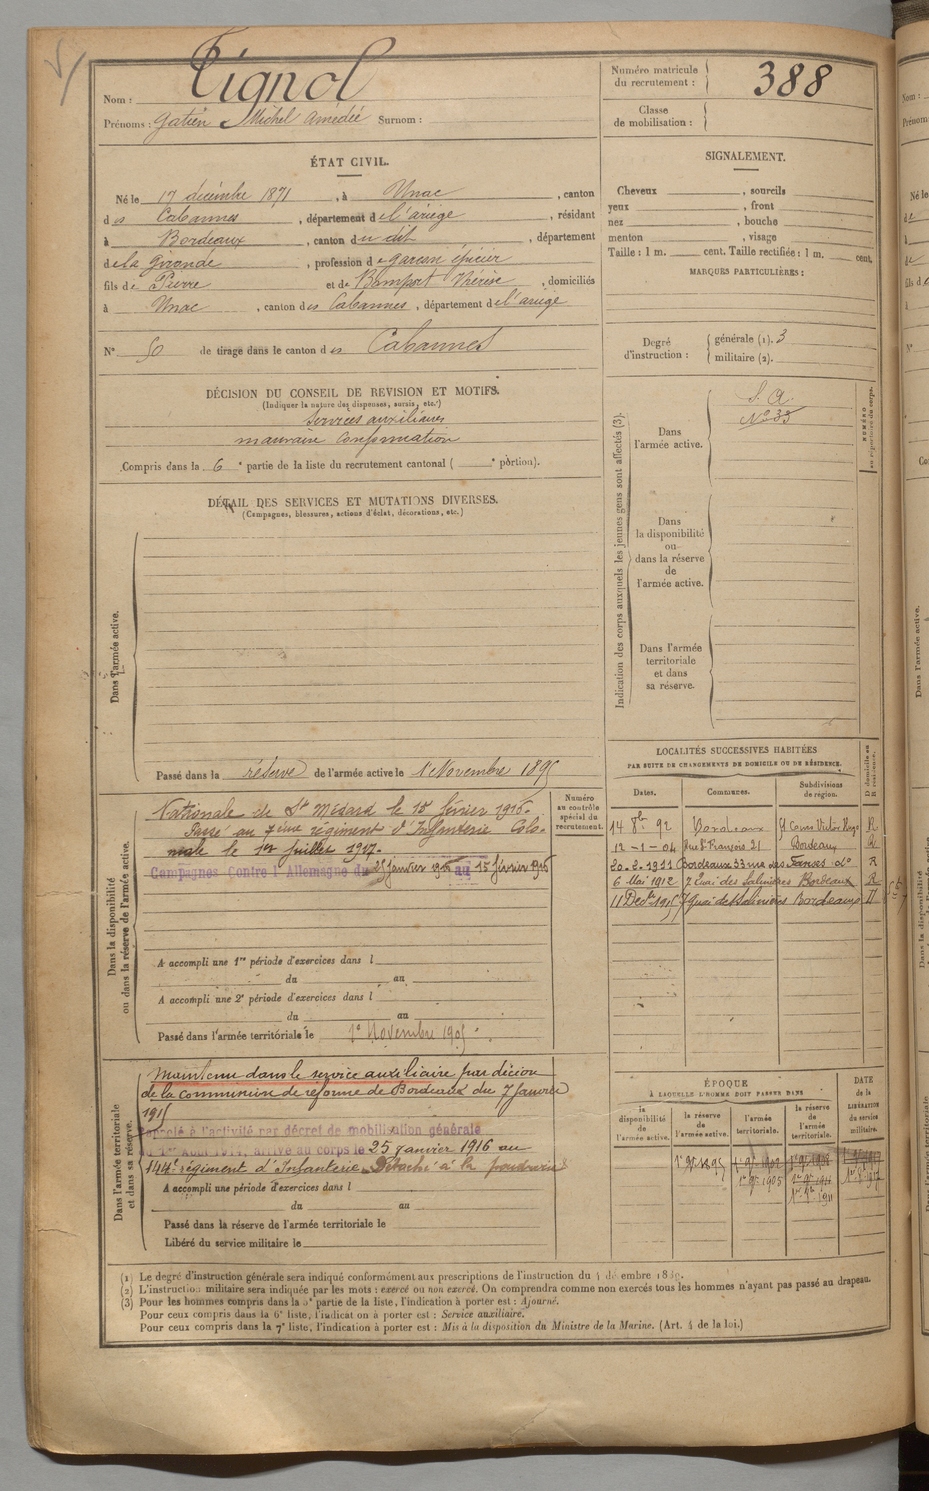 Nom : Tignol
Prénoms : Gatien Michel Amédée Surnom :
Numéro matricule du recrutement : 388
Classe de mobilisation :
ÉTAT CIVIL.
Né le 17 décembre 1871, à Unac, canton
des Cabannes, département de l'ariège, résidant
à Bordeaux, canton du dit, département
de la Gironde, profession de garçon épicier
fils de Pierre et de Thérèse, domiciliés
à Unac, canton des Cabannes, département de l'ariège
N° 50 de tirage dans le canton des Cabannes
SIGNALEMENT.
Cheveux , sourcils
yeux , front
nez , bouche
menton , visage
Taille : 1 m. cent. Taille rectifiée : 1 m. cent.
MARQUES PARTICULIÈRES :
Degré d'instruction : générale (1). 3
militaire (2).
DÉCISION DU CONSEIL DE REVISION ET MOTIFS.
(Indiquer la nature des dispenses, sursis, etc.)
Services auxiliaires
mauvaise conformation
Compris dans la 6e partie de la liste du recrutement cantonal ( e portion).
DÉTAIL DES SERVICES ET MUTATIONS DIVERSES.
(Campagnes, blessures, actions d'éclat, décorations, etc.)
Dans l'armée active.
Passé dans la réserve de l'armée active le 1er Novembre 1895
Indication des corps auxquels les jeunes gens sont affectés (3).
Dans l'armée active.
S. A.
N° 33
NUMÉRO au répertoire du corps.
Dans la disponibilité ou dans la réserve de l'armée active.
Dans l'armée territoriale et dans sa réserve.
Dans la disponibilité ou dans la réserve de l'armée active.
Nationale de St Médard le 15 février 1916.
Passé au 7ème régiment d'Infanterie Colo-
niale le 1er Juillet 1917.
Campagnes Contre l'Allemagne du 25 janvier 1916 au 15 février 1916
Numéro au contrôle spécial du recrutement.
A accompli une 1re période d'exercices dans l
du au
A accompli une 2e période d'exercices dans l
du au
Passé dans l'armée territoriale le 1er Novembre 1905
LOCALITÉS SUCCESSIVES HABITÉES
PAR SUITE DE CHANGEMENTS DE DOMICILE OU DE RÉSIDENCE.
D domicile ou R résidence.
Dates. Communes. Subdivisions de région.
14 8bre 92 Bordeaux Cours Victor Hugo R
12-1-04 rue St François 21 Bordeaux R
20-2-1911 Bordeaux 33 rue des Fauses do R
6 Mai 1912 7 Quai des Salinières Bordeaux R
11 Decbre 1915 7 Quai des Salinières Bordeaux D
Dans l'armée territoriale et dans sa réserve.
Maintenu dans le service auxiliaire par décision
de la commission de réforme de Bordeaux du 7 Janvier
1915
Rappelé à l'activité par décret de mobilisation générale
du 1er Août 1914, arrivé au corps le 25 janvier 1916 au
144e régiment d'Infanterie Détaché à la poudrerie
A accompli une période d'exercices dans l
du au
Passé dans la réserve de l'armée territoriale le
Libéré du service militaire le
ÉPOQUE
À LAQUELLE L'HOMME DOIT PASSER DANS
la disponibilité de l'armée active. la réserve de l'armée active. l'armée territoriale. la réserve de l'armée territoriale.
DATE de la LIBÉRATION du service militaire.
1er 9bre 1895
1er 9bre 1905
1er 9bre 1911
(1) Le degré d'instruction générale sera indiqué conformément aux prescriptions de l'instruction du 4 décembre 1889.
(2) L'instruction militaire sera indiquée par les mots : exercé ou non exercé. On comprendra comme non exercés tous les hommes n'ayant pas passé au drapeau.
(3) Pour les hommes compris dans la 5e partie de la liste, l'indication à porter est : Ajourné.
Pour ceux compris dans la 6e liste, l'indication à porter est : Service auxiliaire.
Pour ceux compris dans la 7e liste, l'indication à porter est : Mis à la disposition du Ministre de la Marine. (Art. 4 de la loi.)